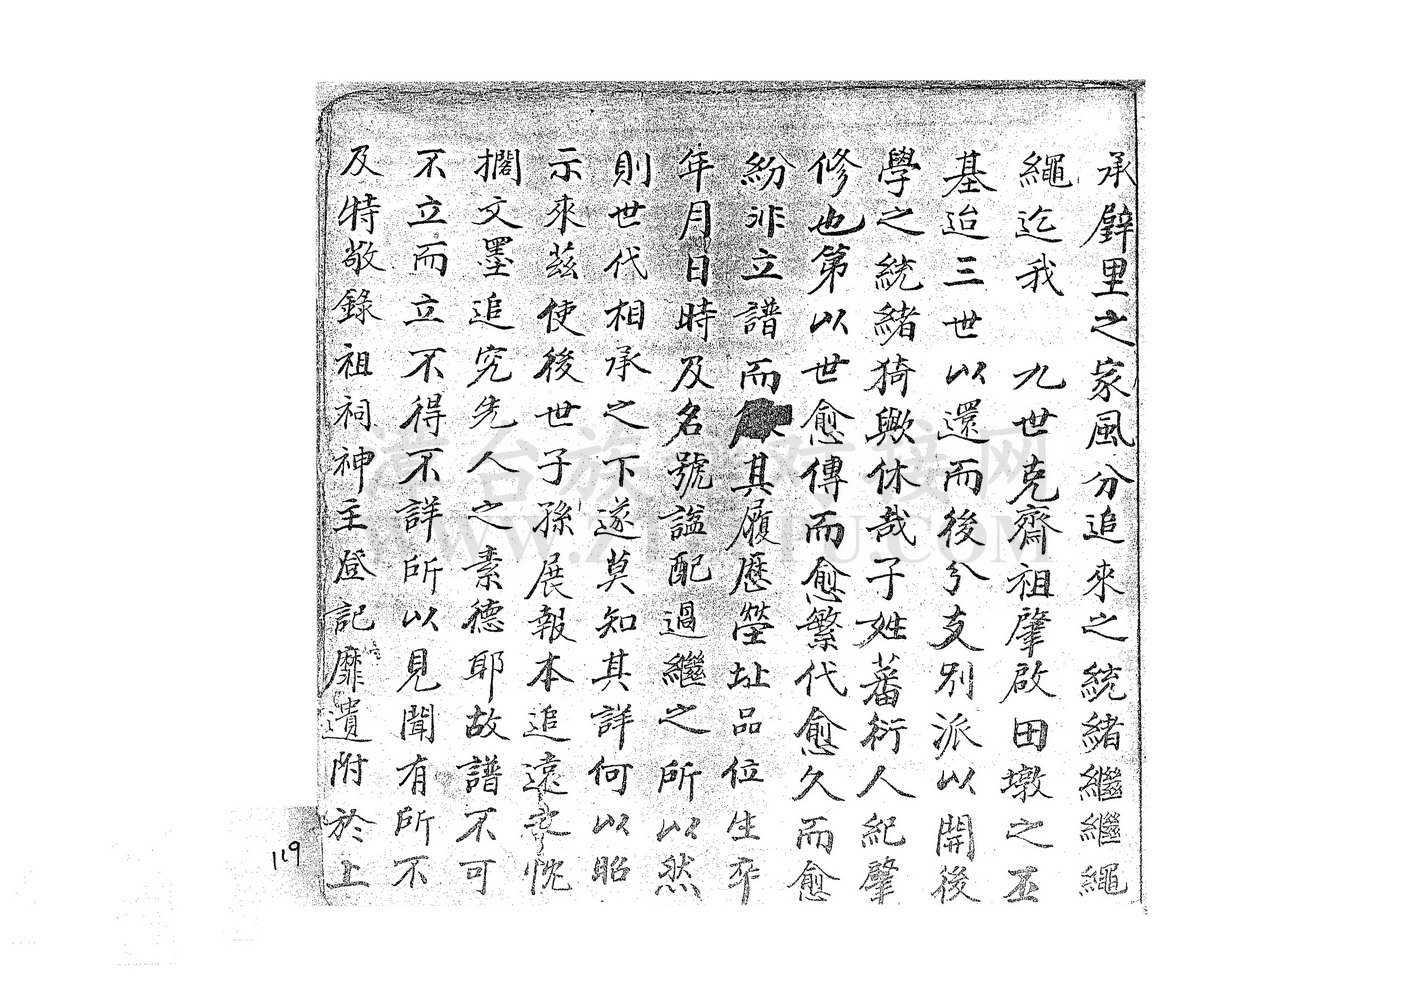 承壁里之家風分追來之統緒繼繼繩
繩迄我 九世克齋祖肇啟田墩之丕
基迨三世以還而後分支別派以開後
學之統緒猗歟休哉子姓蕃衍人紀肇
修也第以世愈傳而愈繁代愈久而愈
紛非立譜而其履歷塋址品位生卒
年月日時及名號諡配過繼之所以然
則世代相承之下遂莫知其詳何以昭
示來茲使後世子孫展報本追遠忱
擱文墨追究先人之素德耶故譜不可
不立而立不得不詳所以見聞有所不
及特敬錄祖祠神主登記靡遺附於上
119
漳台族譜對接網
WWW.ZTZUPU.COM